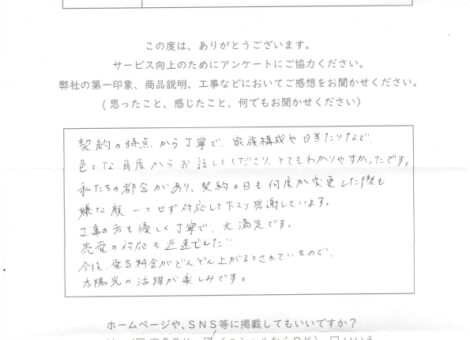 この度は、ありがとうございます。
サービス向上のためにアンケートにご協力ください。
弊社の第一印象、商品説明、工事などにおいてご感想をお聞かせください。
(思ったこと、感じたこと、何でもお聞かせください)
契約の時点から丁寧で、家族構成や日当たりなど
色々な角度からお話しくださり、とてもわかりやすかったです。
私たちの都合があり、契約の日も何度か変更した際も
嫌な顔一つせず対応して下さり感謝しています。
工事の方も優しく丁寧で、大満足です。
売電の対応も迅速でした!!
今後、電気料金がどんどん上がるとされているので、
太陽光の活躍が楽しみです。
ホームページや、SNS等に掲載してもいいですか?